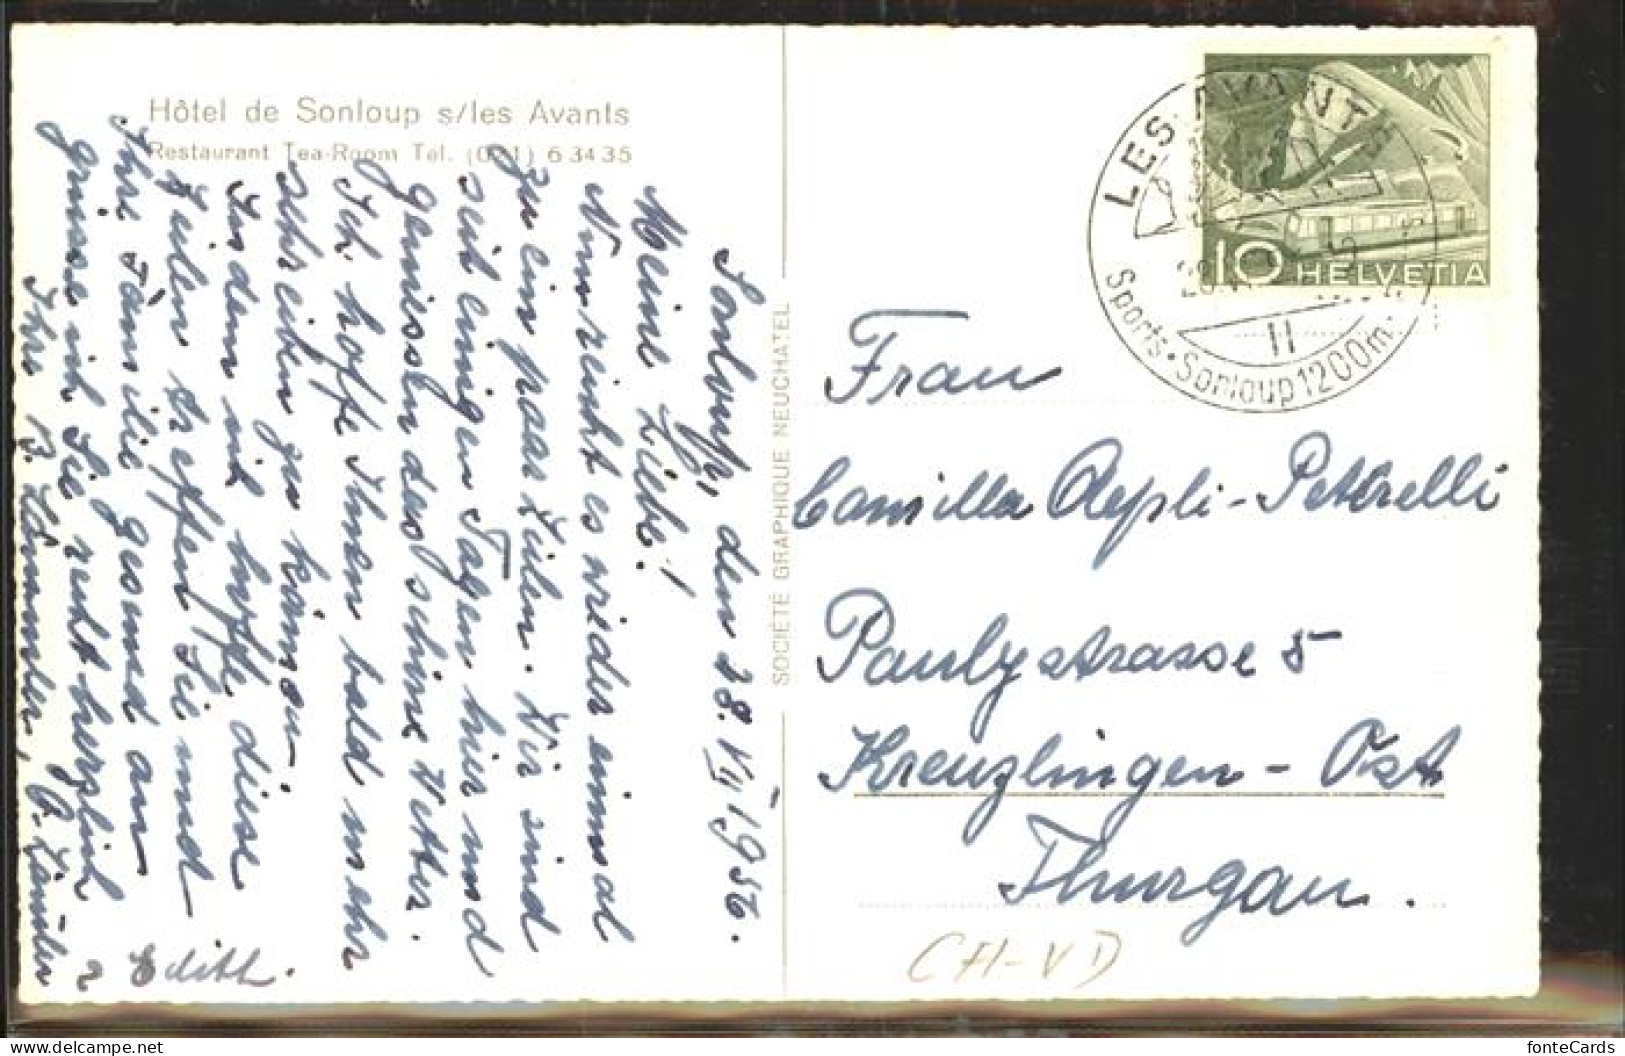 Hôtel de Sonloup s/les Avants
Restaurant Tea-Room Tel. (021) 6 34 35
Sonloup, den 28. VII 1956.
Meine Liebe!
Nun reicht es wieder einmal
zu ein paar Zeilen. Wir sind
seit einigen Tagen hier und
geniessen das schöne Wetter.
Ich hoffe Ihnen bald mehr
schreiben zu können.
Indem ich hoffe diese
Zeilen treffen Sie und
Ihre Familie gesund an
grüsse ich Sie recht herzlich
Ihre B.
Edith.
SOCIÉTÉ GRAPHIQUE NEUCHATEL
LES AVANTS
Sports • Sonloup 1200m.
II
10 HELVETIA
Frau
Camilla Aepli-Pettrelli
Paulystrasse 5
Kreuzlingen - Ost
Thurgau.
CH-VD
fonteCards